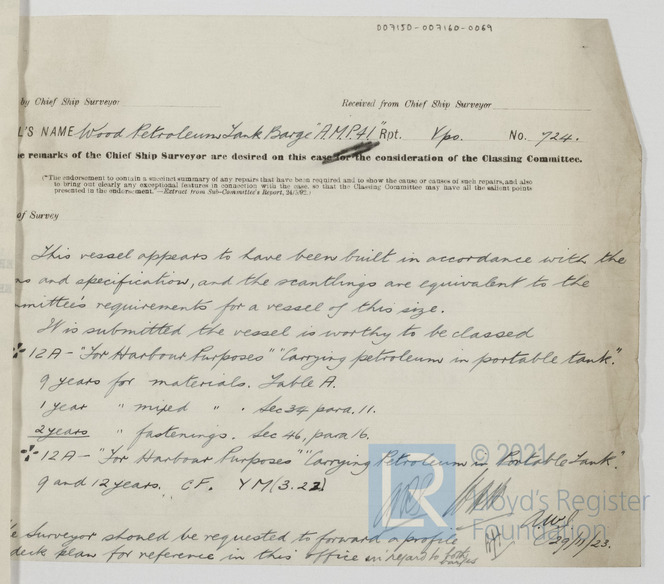 007150-007160-0069
by Chief Ship Surveyor
Received from Chief Ship Surveyor
L'S NAME Wood Petroleum Tank Barge "A.M.P.41." Rpt. Vpo. No. 724.
e remarks of the Chief Ship Surveyor are desired on this case for the consideration of the Classing Committee.
(*The endorsement to contain a succinct summary of any repairs that have been required and to show the cause or causes of such repairs, and also
to bring out clearly any exceptional features in connection with the case, so that the Classing Committee may have all the salient points
presented in the endorsement."—Extract from Sub-Committee's Report, 24/5/02.)
of Survey
This vessel appears to have been built in accordance with the
ns and specification, and the scantlings are equivalent to the
mmittee's requirements for a vessel of this size.
It is submitted the vessel is worthy to be classed
12A - "For Harbour Purposes" "Carrying petroleum in portable tank".
9 years for materials. Table A.
1 year " mixed " . Sec 34, para. 11.
2 years " fastenings. Sec 46, para 16.
12A - "For Harbour Purposes" "Carrying Petroleum in Portable Tank".
9 and 12 years. CF. YM (3.22)
LR © 2021
Lloyd's Register
Foundation
e Surveyor should be requested to forward a profile
deck plan for reference in this office in regard to both barges
29/11/23.